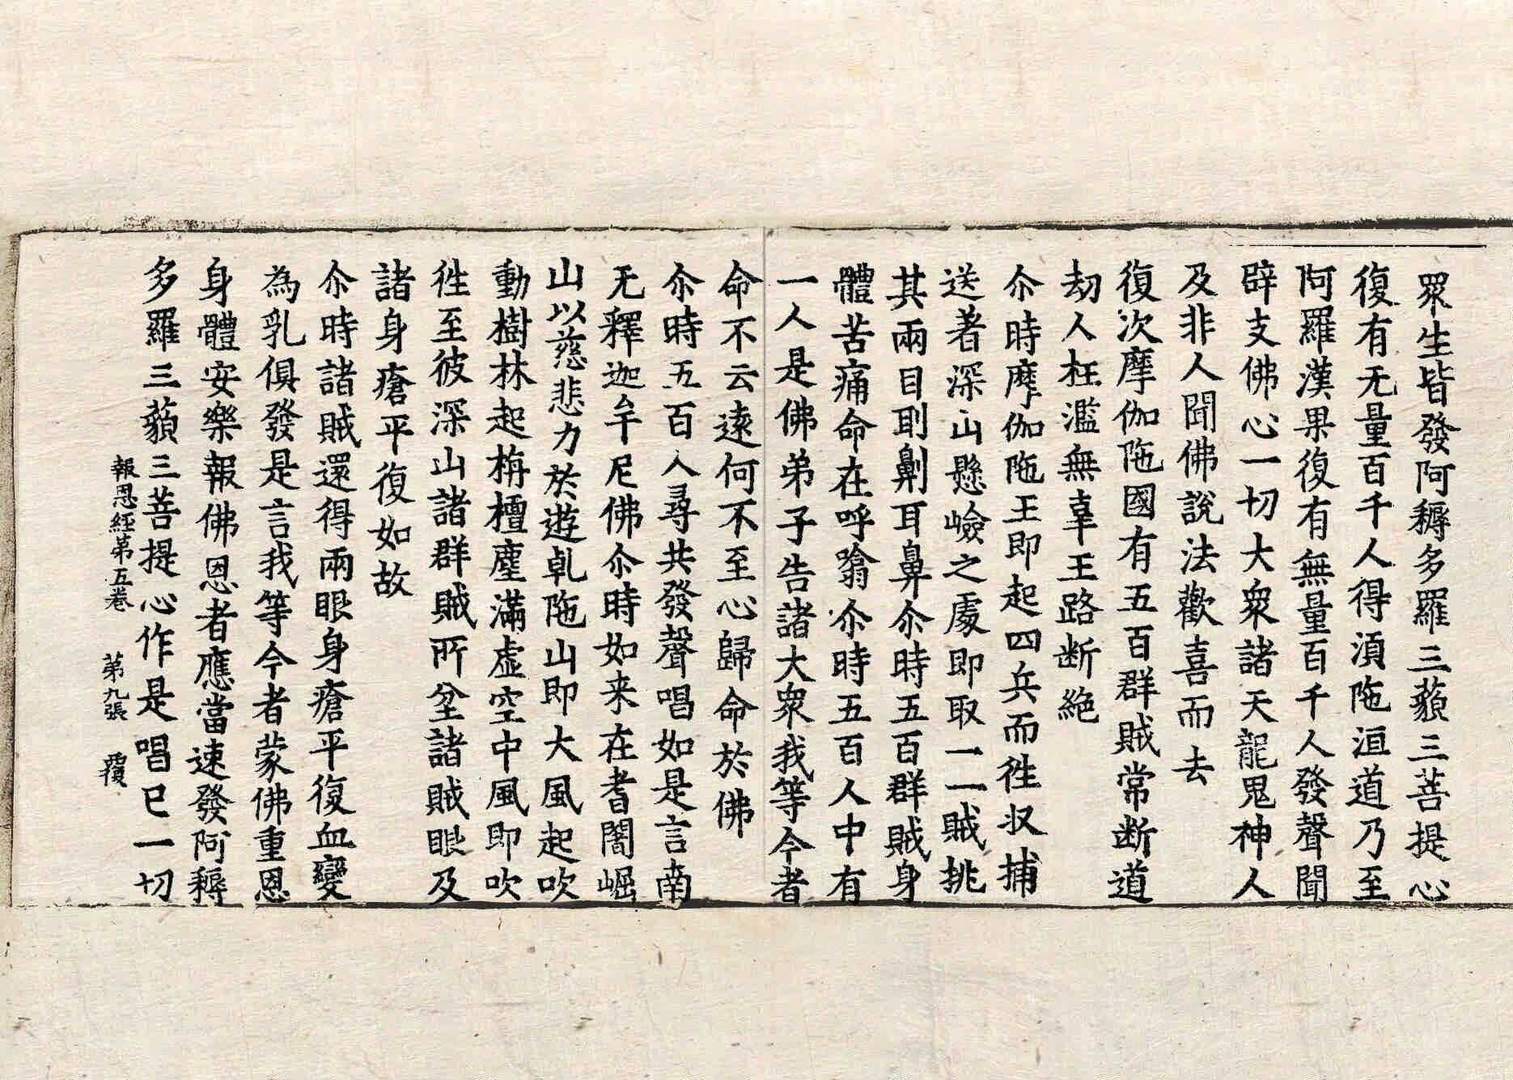 眾生皆發阿耨多羅三藐三菩提心
復有无量百千人得湏陁洹道乃至
阿羅漢果復有無量百千人發聲聞
辟支佛心一切大衆諸天龍鬼神人
及非人聞佛說法歡喜而去
復次摩伽陁國有五百群賊常斷道
劫人枉濫無辜王路断絶
尒時摩伽陁王即起四兵而徃収捕
送著深山懸嶮之處即取一一賊挑
其兩目刖劓耳鼻尒時五百群賊身
體苦痛命在呼噏尒時五百人中有
一人是佛弟子告諸大衆我等今者
命不云遠何不至心歸命於佛
尒時五百人尋共發聲唱如是言南
无釋迦牟尼佛尒時如来在耆闍崛
山以慈悲力於遊乹陁山即大風起吹
動樹林起栴檀塵滿虛空中風即吹
徃至彼深山諸群賊所坌諸賊眼及
諸身瘡平復如故
尒時諸賊還得兩眼身瘡平復血變
為乳俱發是言我等今者蒙佛重恩
身體安樂報佛恩者應當速發阿耨
多羅三藐三菩提心作是唱已一切
報恩經第五卷 第九張 覆